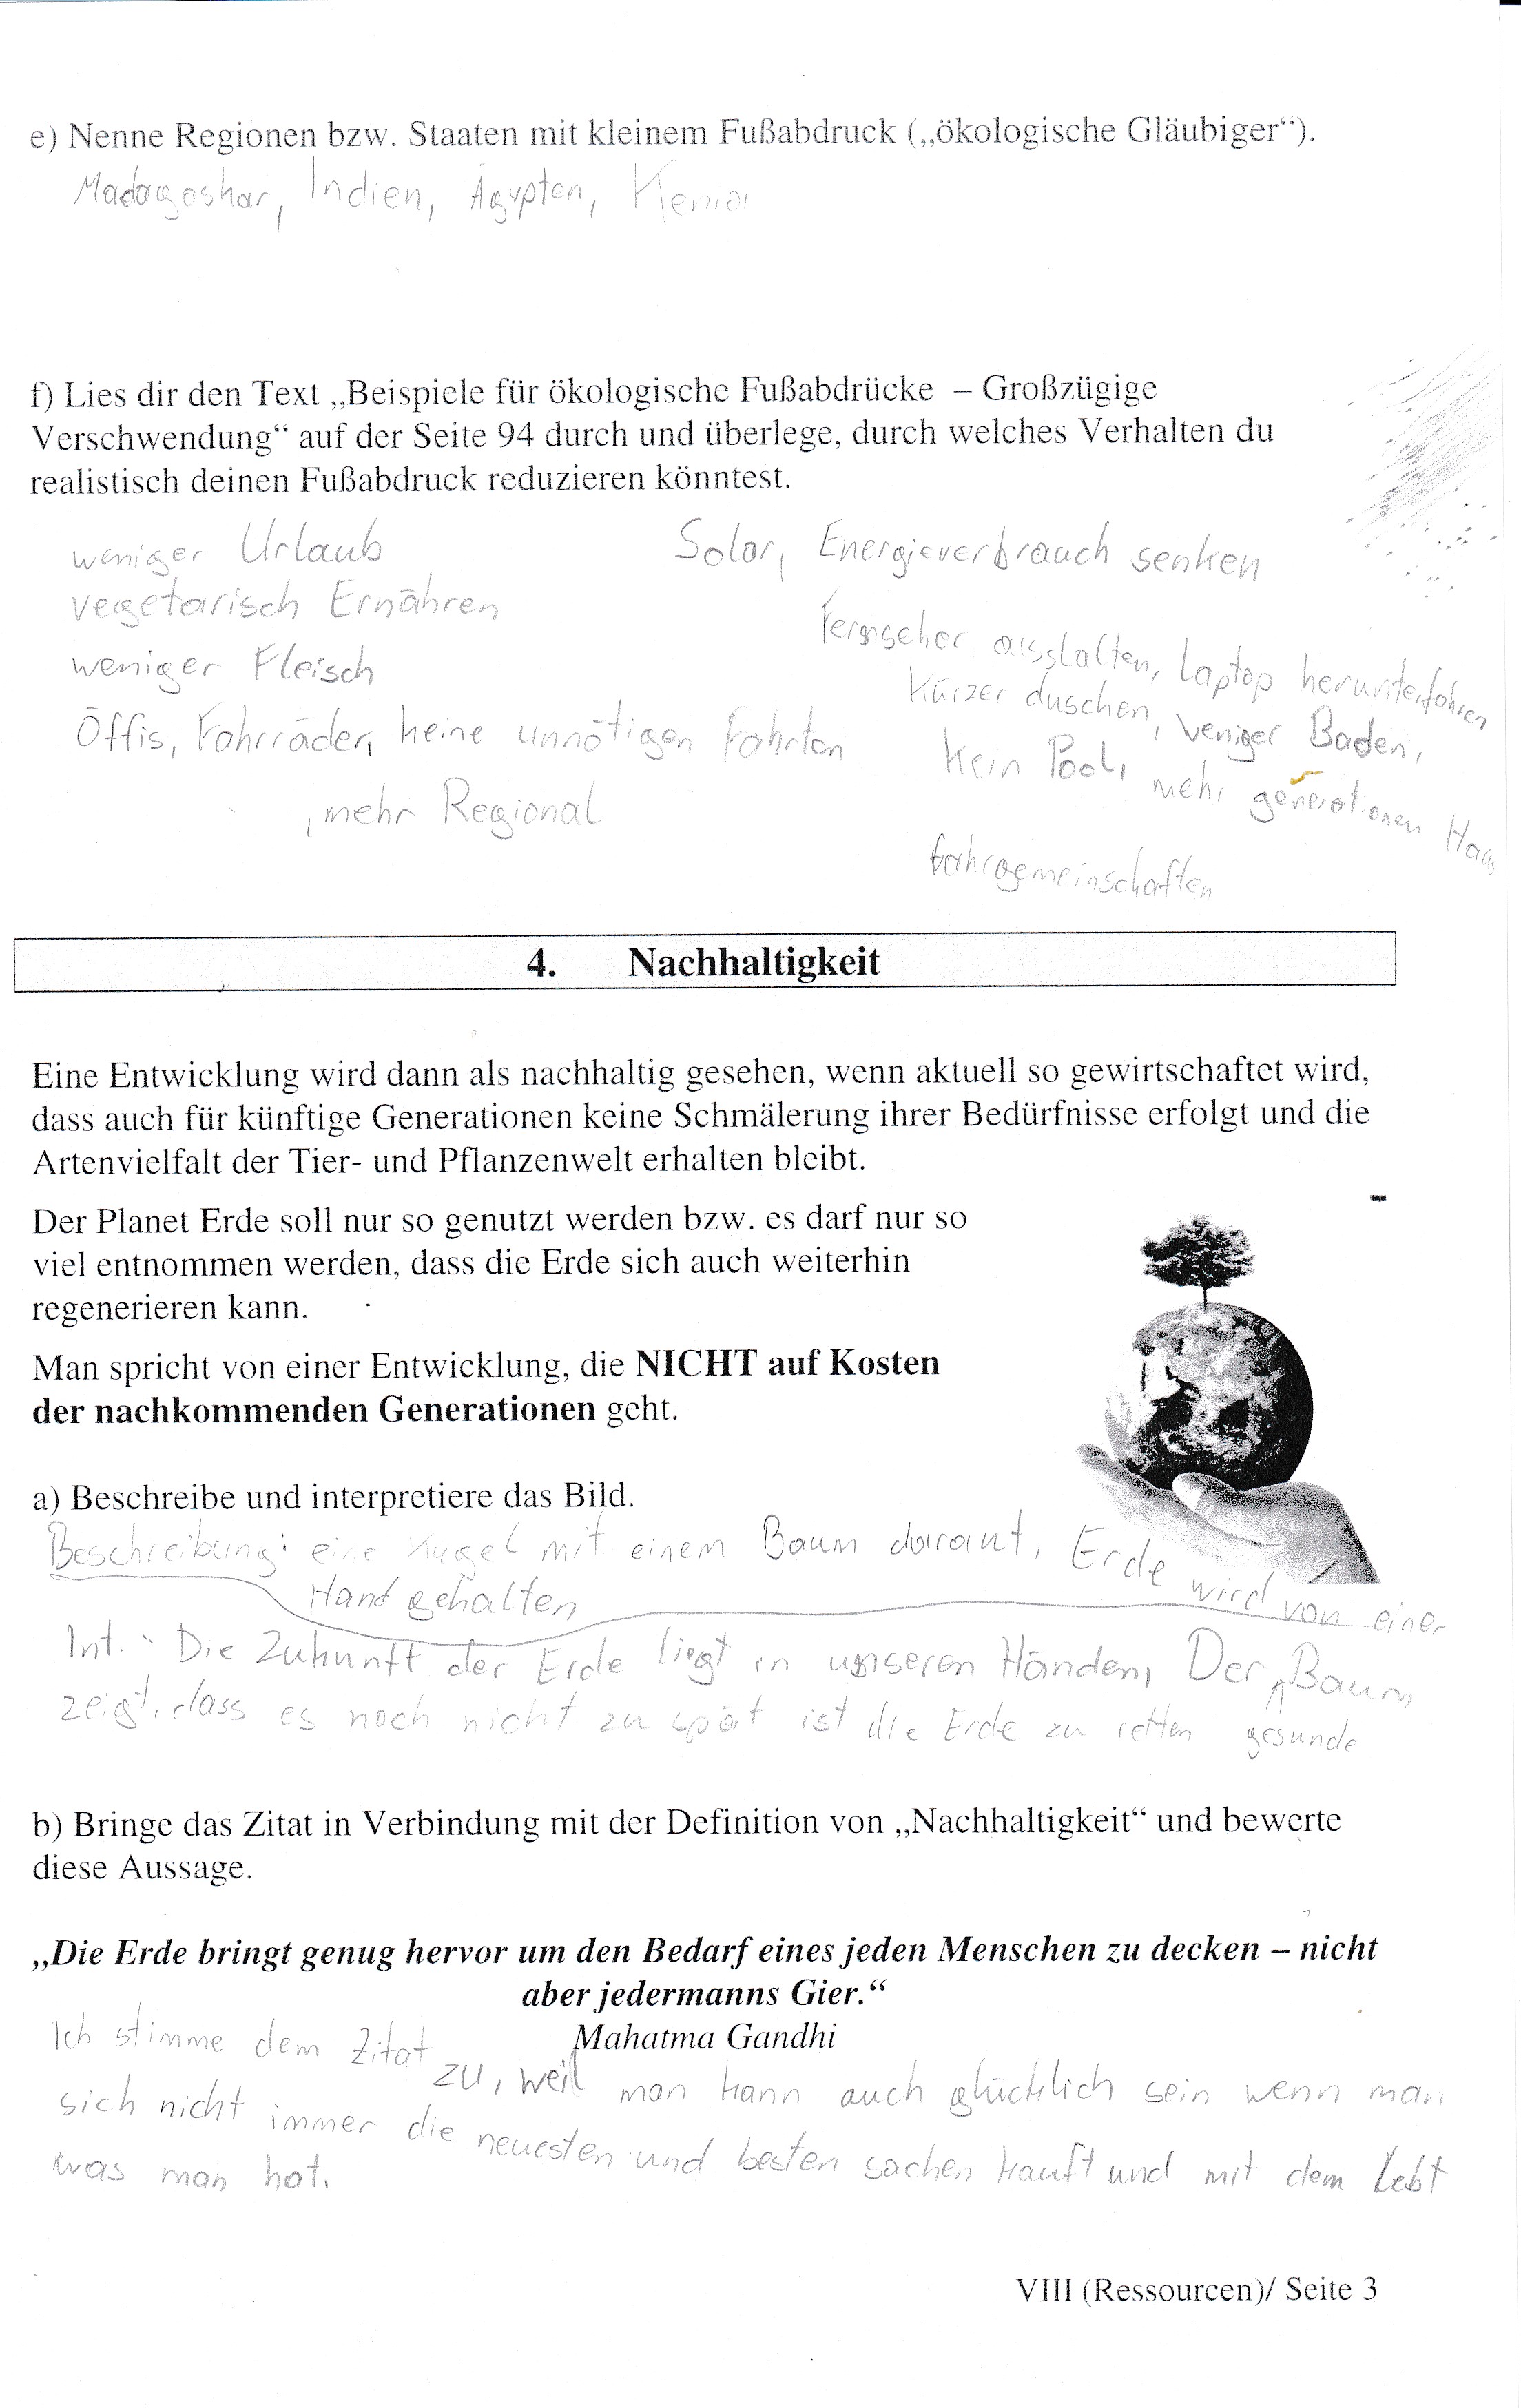 e) Nenne Regionen bzw. Staaten mit kleinem Fußabdruck („ökologische Gläubiger“).
Madagaskar, Indien, Ägypten, Kenia
f) Lies dir den Text „Beispiele für ökologische Fußabdrücke – Großzügige
Verschwendung“ auf der Seite 94 durch und überlege, durch welches Verhalten du
realistisch deinen Fußabdruck reduzieren könntest.
weniger Urlaub
vegetarisch Ernähren
weniger Fleisch
Öffis, Fahrräder, keine unnötigen Fahrten
, mehr Regional
Solar, Energieverbrauch senken
Fernseher ausslalten, Laptop herunterfahren
Kürzer duschen, weniger Baden,
kein Pool, mehr generationen Haus
Fahrgemeinschaften
4. Nachhaltigkeit
Eine Entwicklung wird dann als nachhaltig gesehen, wenn aktuell so gewirtschaftet wird,
dass auch für künftige Generationen keine Schmälerung ihrer Bedürfnisse erfolgt und die
Artenvielfalt der Tier- und Pflanzenwelt erhalten bleibt.
Der Planet Erde soll nur so genutzt werden bzw. es darf nur so
viel entnommen werden, dass die Erde sich auch weiterhin
regenerieren kann.
Man spricht von einer Entwicklung, die NICHT auf Kosten
der nachkommenden Generationen geht.
a) Beschreibe und interpretiere das Bild.
Beschreibung: eine Kugel mit einem Baum darauf, Erde wird von einer
Hand gehalten
Int.: Die Zukunft der Erde liegt in unseren Händen, Der gesunde Baum
zeigt, dass es noch nicht zu spät ist die Erde zu retten
b) Bringe das Zitat in Verbindung mit der Definition von „Nachhaltigkeit“ und bewerte
diese Aussage.
„Die Erde bringt genug hervor um den Bedarf eines jeden Menschen zu decken – nicht
aber jedermanns Gier.“
Mahatma Gandhi
Ich stimme dem Zitat zu, weil man kann auch glücklich sein wenn man
sich nicht immer die neuesten und besten sachen kauft und mit dem Lebt
was man hat.
VIII (Ressourcen)/ Seite 3